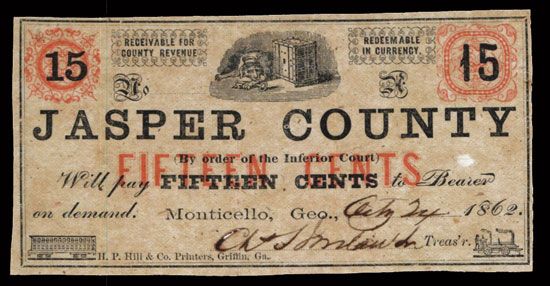 15 RECEIVABLE FOR COUNTY REVENUE REDEEMABLE IN CURRENCY. 15
No A
JASPER COUNTY
(By order of the Inferior Court)
FIFTEEN CENTS
Will pay FIFTEEN CENTS to Bearer
on demand. Monticello, Geo., 24 1862.
Treas'r.
H. P. Hill & Co. Printers, Griffin, Ga.